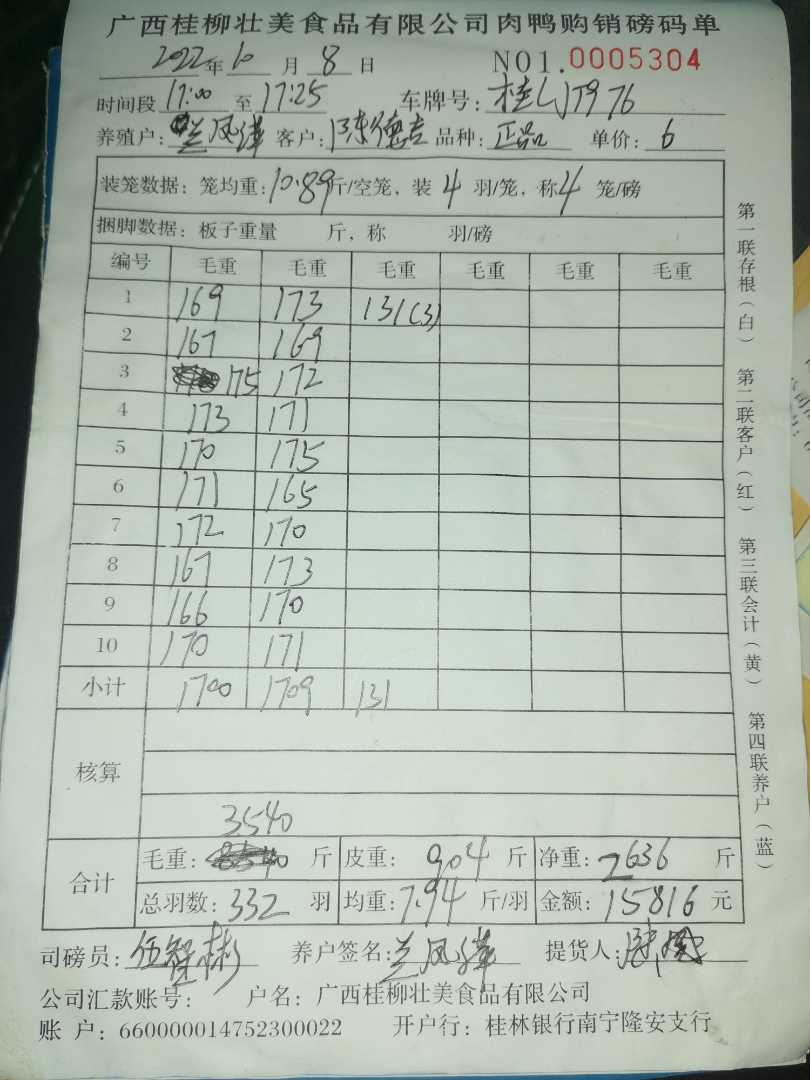 广西桂柳壮美食品有限公司肉鸭购销磅码单
2022年10月8日 NO1.0005304
时间段 17:00 至 17:25 车牌号: 桂 J1976
养殖户: 兰凤 客户: 陈德吉 品种: 正品 单价: 6
装笼数据: 笼均重: 10.89斤/空笼, 装 4 羽/笼, 称 4 笼/磅
捆脚数据: 板子重量 斤, 称 羽/磅
编号 毛重 毛重 毛重 毛重 毛重 毛重
1 169 173 131(3)
2 167 169
3 175 172
4 173 171
5 170 175
6 171 165
7 172 170
8 167 173
9 166 170
10 170 171
小计 1700 1709 131
核算
3540
合计
毛重: 斤 皮重: 904 斤 净重: 2636 斤
总羽数: 332 羽 均重: 7.94 斤/羽 金额: 15816 元
司磅员: 伍智彬 养户签名: 兰凤 提货人:
公司汇款账号: 户名: 广西桂柳壮美食品有限公司
账 户: 660000014752300022 开户行: 桂林银行南宁隆安支行
第一联存根(白) 第二联客户(红) 第三联会计(黄) 第四联养户(蓝)